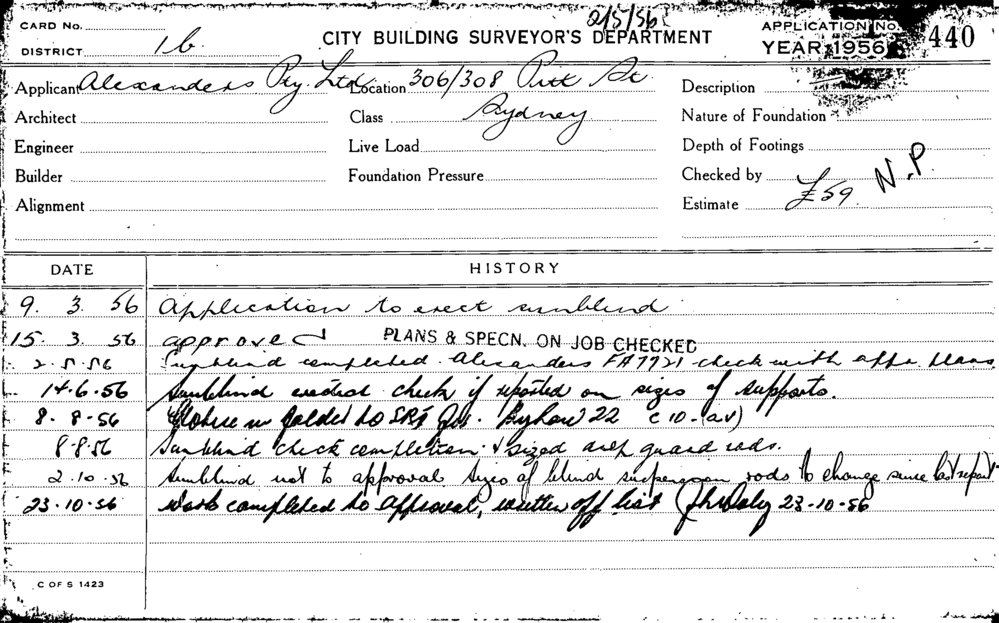 CARD No.
2/5/56
DISTRICT 16
CITY BUILDING SURVEYOR'S DEPARTMENT
APPLICATION No. 440
YEAR 1956
Applicant Alexanders Pty. Ltd Location 306/308 Pitt St. Description
Architect Class Sydney Nature of Foundation
Engineer Live Load Depth of Footings
Builder Foundation Pressure Checked by N.P.
Alignment Estimate £59
DATE HISTORY
9. 3. 56 Application to erect sunblind
15. 3. 56 approved PLANS & SPECN. ON JOB CHECKED
2-5-56 Sunblind completed. Alexanders FA7721 check with appr. plans
14-6-56 Sunblind erected check if reported on sizes of supports.
8. 8-56 to 22
8-8-56 Sunblind check completion & sized guard rods.
2.10.56 Sunblind not to approval sizes of blind suspension rods to change since last report
23.10.56 Work completed to approval, written off list 23-10-56
C OF S 1423